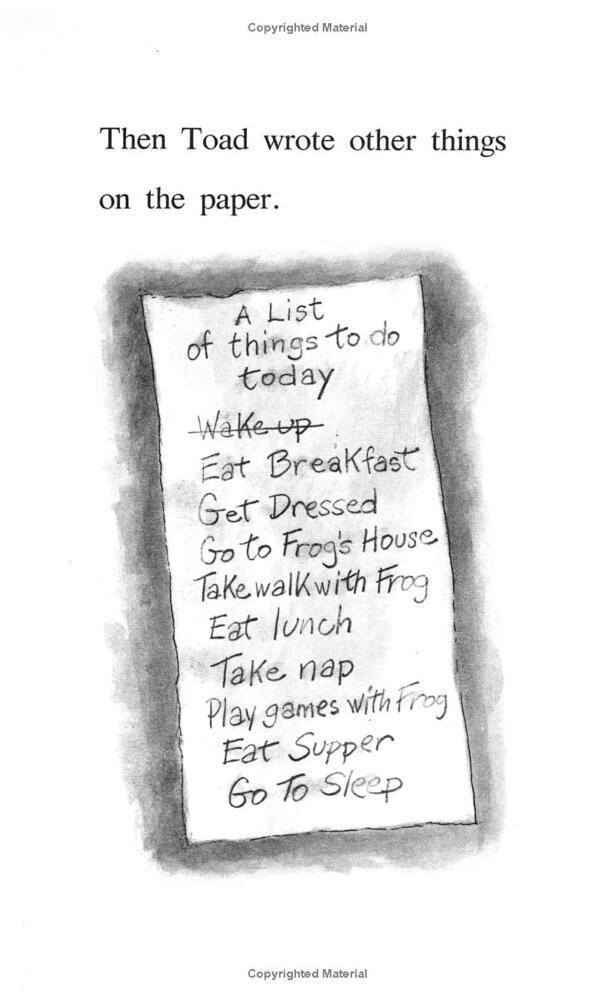 Copyrighted Material
Then Toad wrote other things
on the paper.
A List
of things to do
today
Wake up
Eat Breakfast
Get Dressed
Go to Frog's House
Take walk with Frog
Eat lunch
Take nap
Play games with Frog
Eat Supper
Go To Sleep
Copyrighted Material